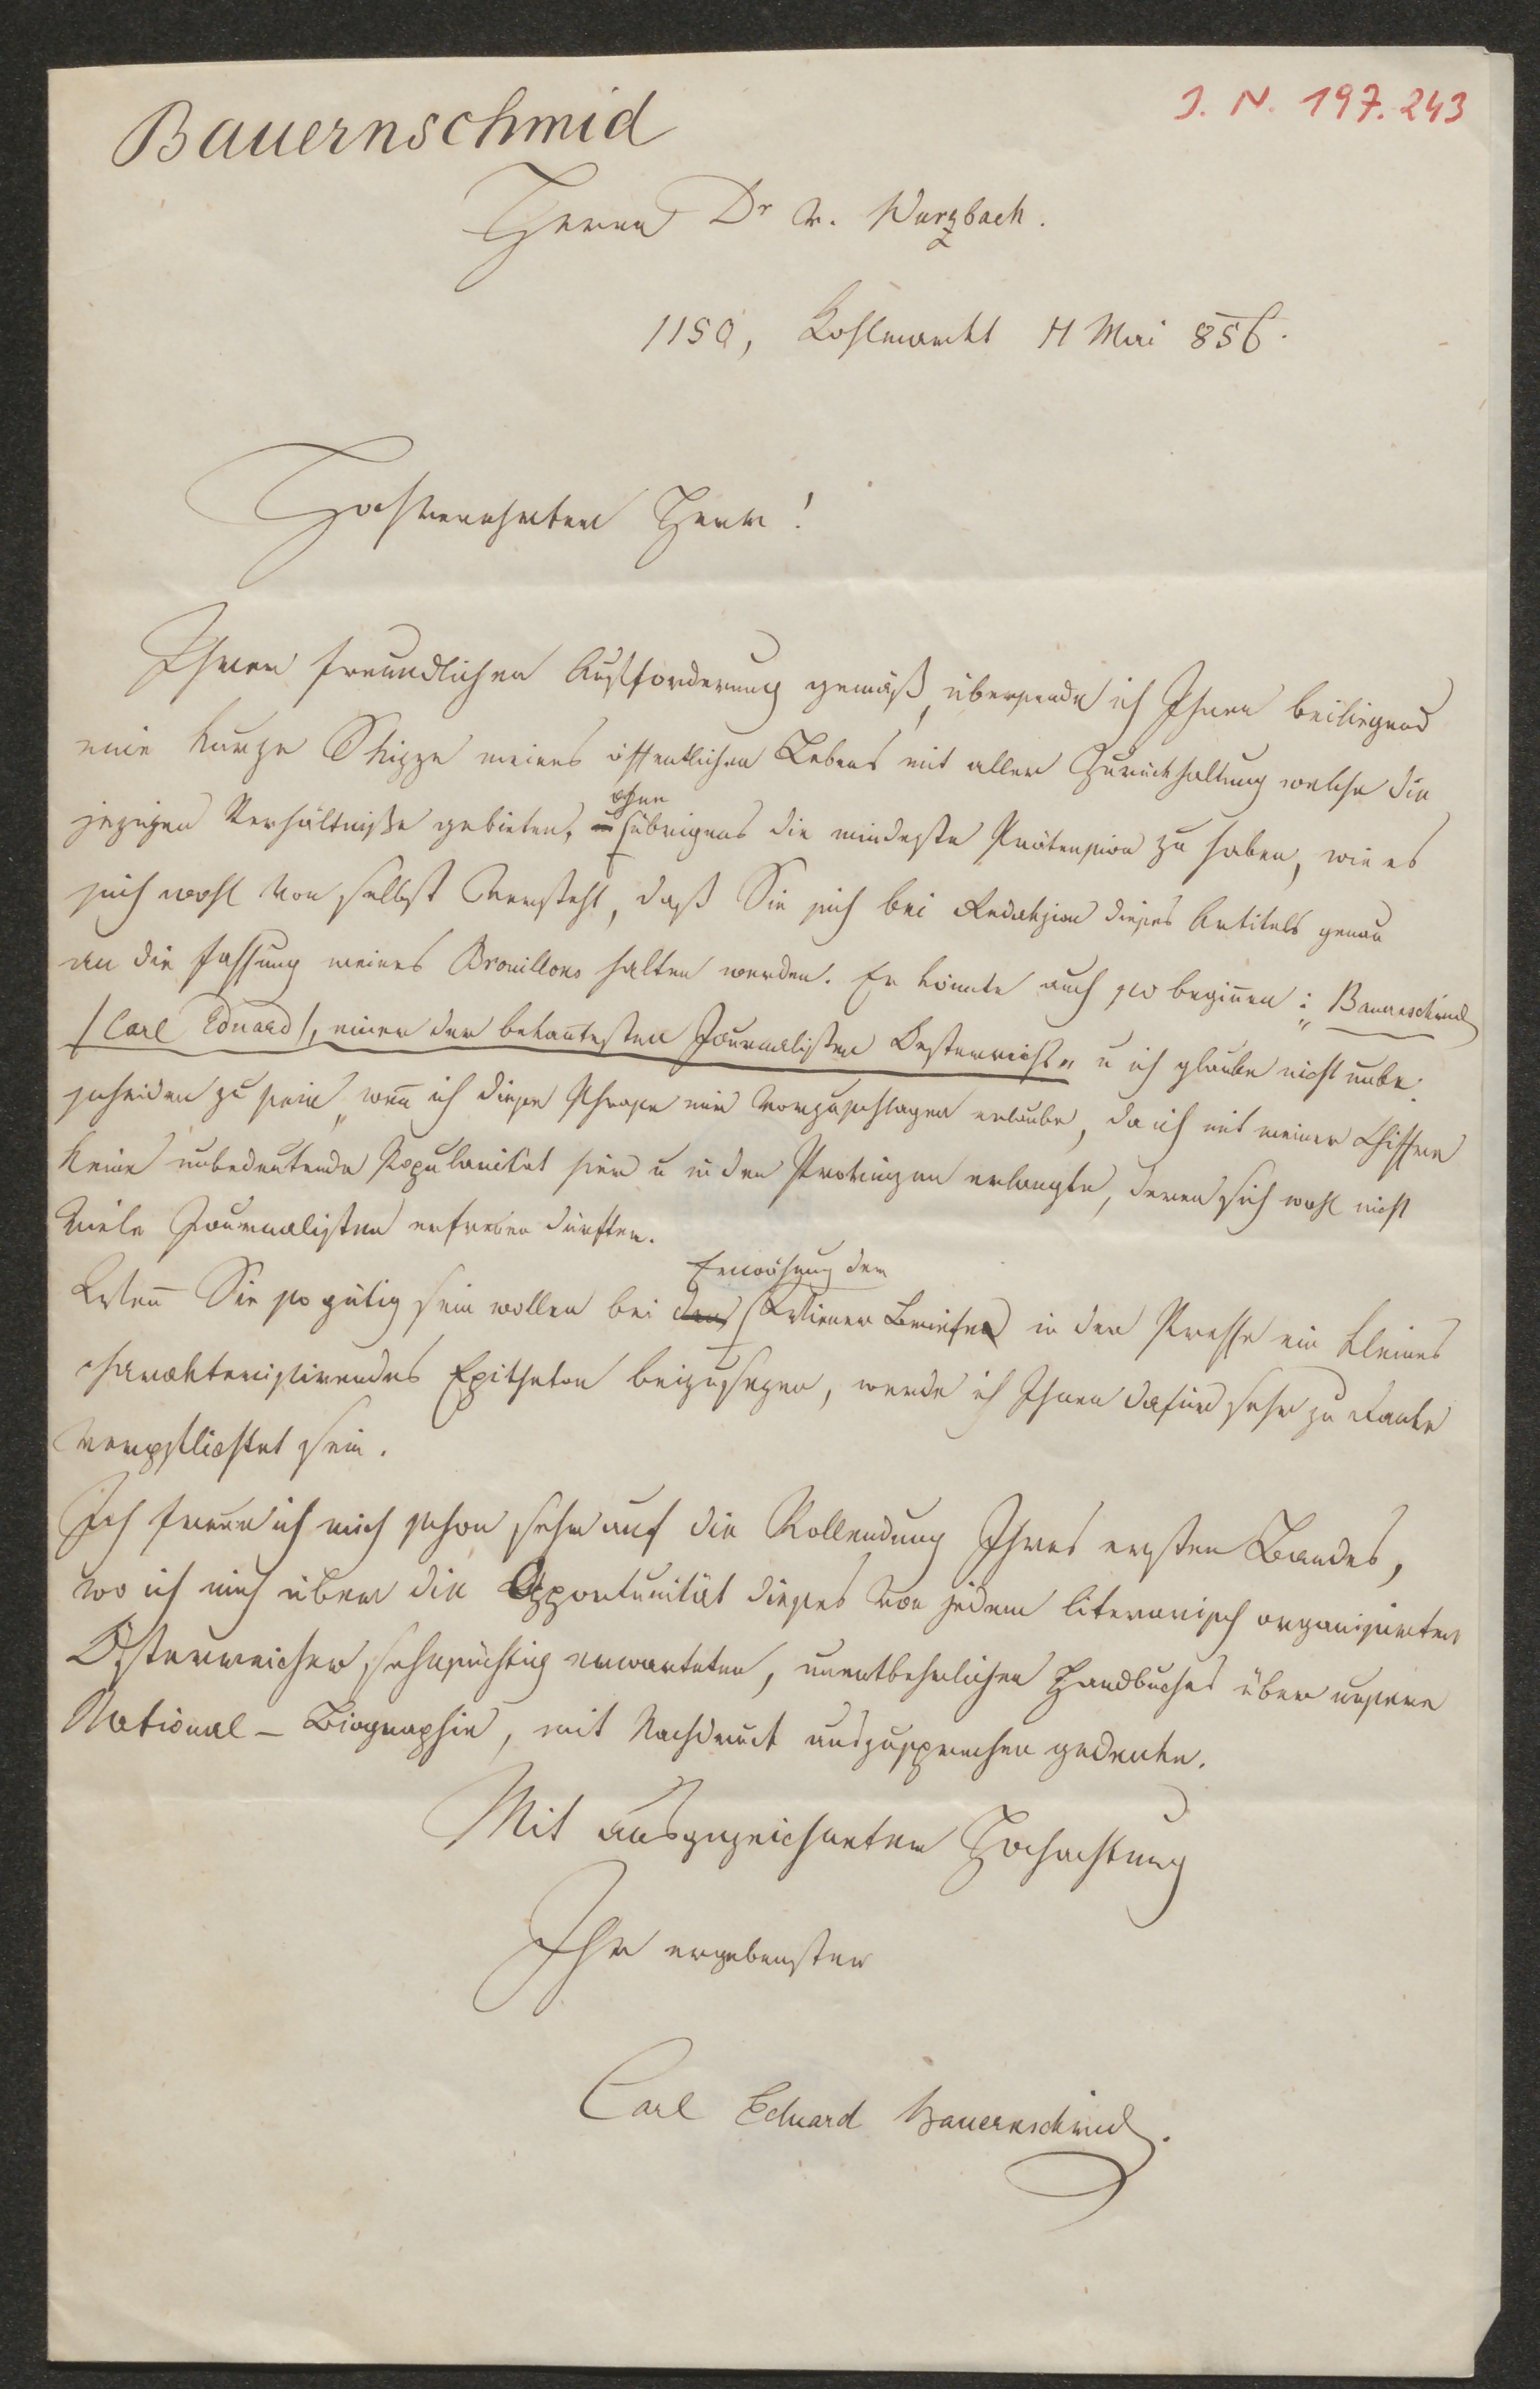 Bauernschmid
J. N. 197.243
Herrn Dr v. Wurzbach.
1150, Kohlmarkt 11 Mai 856.
Hochverehrter Herr!
Ihrer freundlichen Aufforderung gemäß, übersende ich Ihnen beiliegend
eine kurze Skizze meines öffentlichen Lebens mit aller Zurückhaltung welche die
jezigen Verhältniße gebieten, ohne übrigens die mindeste Prätension zu haben, wie es
sich wohl von selbst versteht, daß Sie sich bei Redakzion dieses Artikels genau
an die Fassung meines Brouillons halten werden. Er könnte auch so begiñen: „Bauernschmid
/Carl Eduard/, einer der bekañtesten Journalisten Oesterreichs" u ich glaube nicht unbe-
scheiden zu sein, weñ ich diese Phrase mir vorzuschlagen erlaube, da ich mit meiner Chiffre
keine unbedeutende Popularität hier u in den Provinzen erlangte, deren sich wohl nicht
viele Journalisten erfreuen dürften.
Weñ Sie so gütig sein wollen bei den Erwähnung der Wiener Briefe in der Presse ein kleines
charakterisirendes Epitheton beizusezen, werde ich Ihnen dafür sehr zu Danke
verpflichtet sein.
Ich freue ich mich schon sehr auf die Vollendung Ihres ersten Bandes,
wo ich mich über die Opportunität dieses von jedem literarisch organisirten
Österreicher sehnsüchtig erwarteten, unentbehrlichen Handbuches über unsere
National-Biographie, mit Nachdruck auszusprechen gedenke.
Mit ausgezeichneter Hochachtung
Ihr ergebenster
Carl Eduard Bauernschmid.